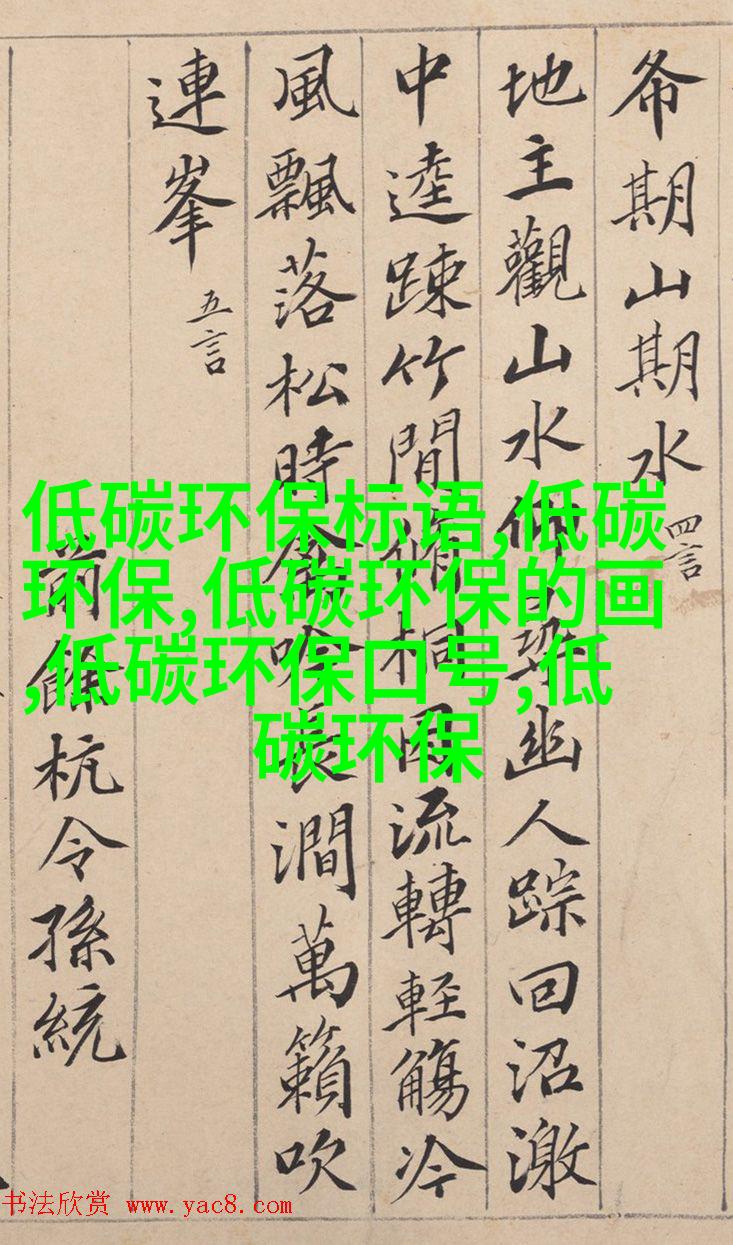 希期山期水 四言
地主觀山水仰尋幽人踪回沼激
中逵踈竹間脩桐因流轉輕觴冷
風飄落松時禽吟長澗萬籟吹
連峯 五言
前餘杭令孫統
低碳环保标语,低碳
环保,低碳环保的画
,低碳环保口号,低
碳环保
书法欣赏 www.yac8.com